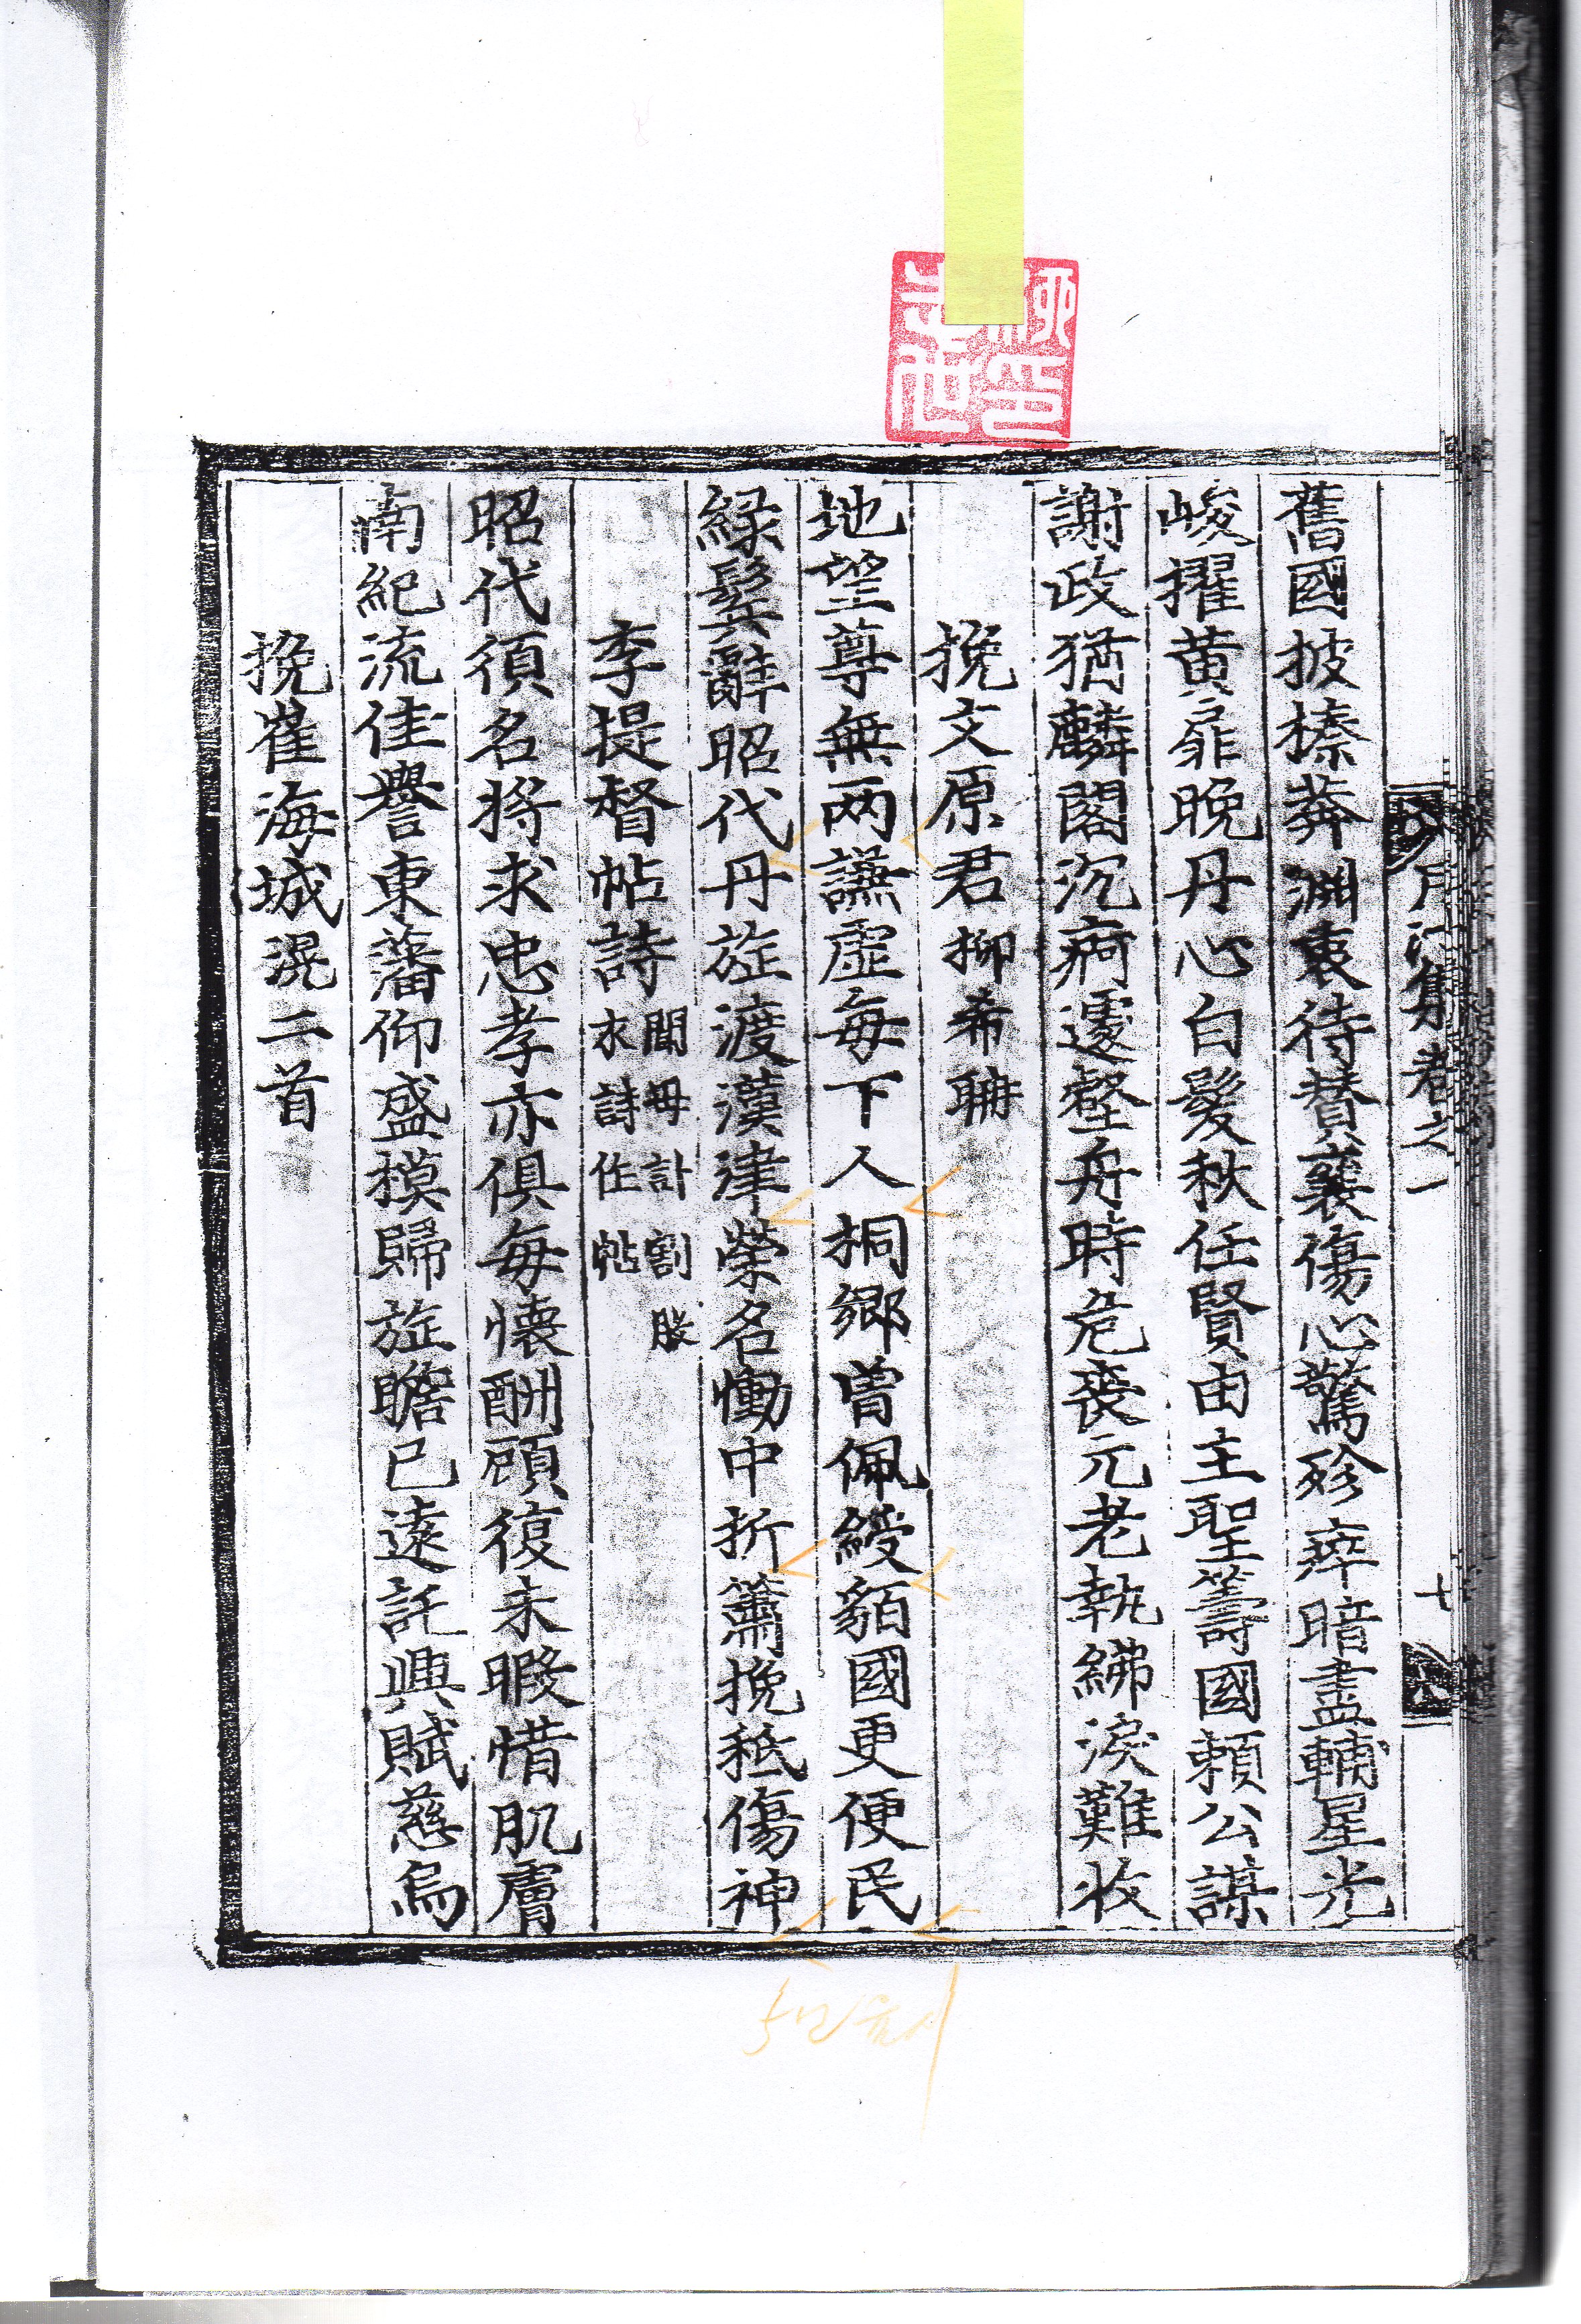 舊國披榛莽淵衷待贊襄傷心驚殄瘁暗盡輔星光
峻擢黃扉晚丹心白髮秋任賢由主聖籌國賴公謀
謝政猶麟閣沉痾遽壑舟時危喪元老執紼淚難收
挽文原君 柳希聃
地望尊無兩謙虛每下人桐鄉曾佩綬貊國更便民
綠鬂辭昭代丹旌渡漢津榮名慟中折簫挽秪傷神
李提督帖詩 聞母訃割股
衣詩作帖
昭代須名將求忠孝亦俱每懷酬顧復未暇惜肌膚
南紀流佳譽東藩仰盛模歸旌瞻已遠託興賦慈烏
挽崔海城滉二首
集 卷之一
十